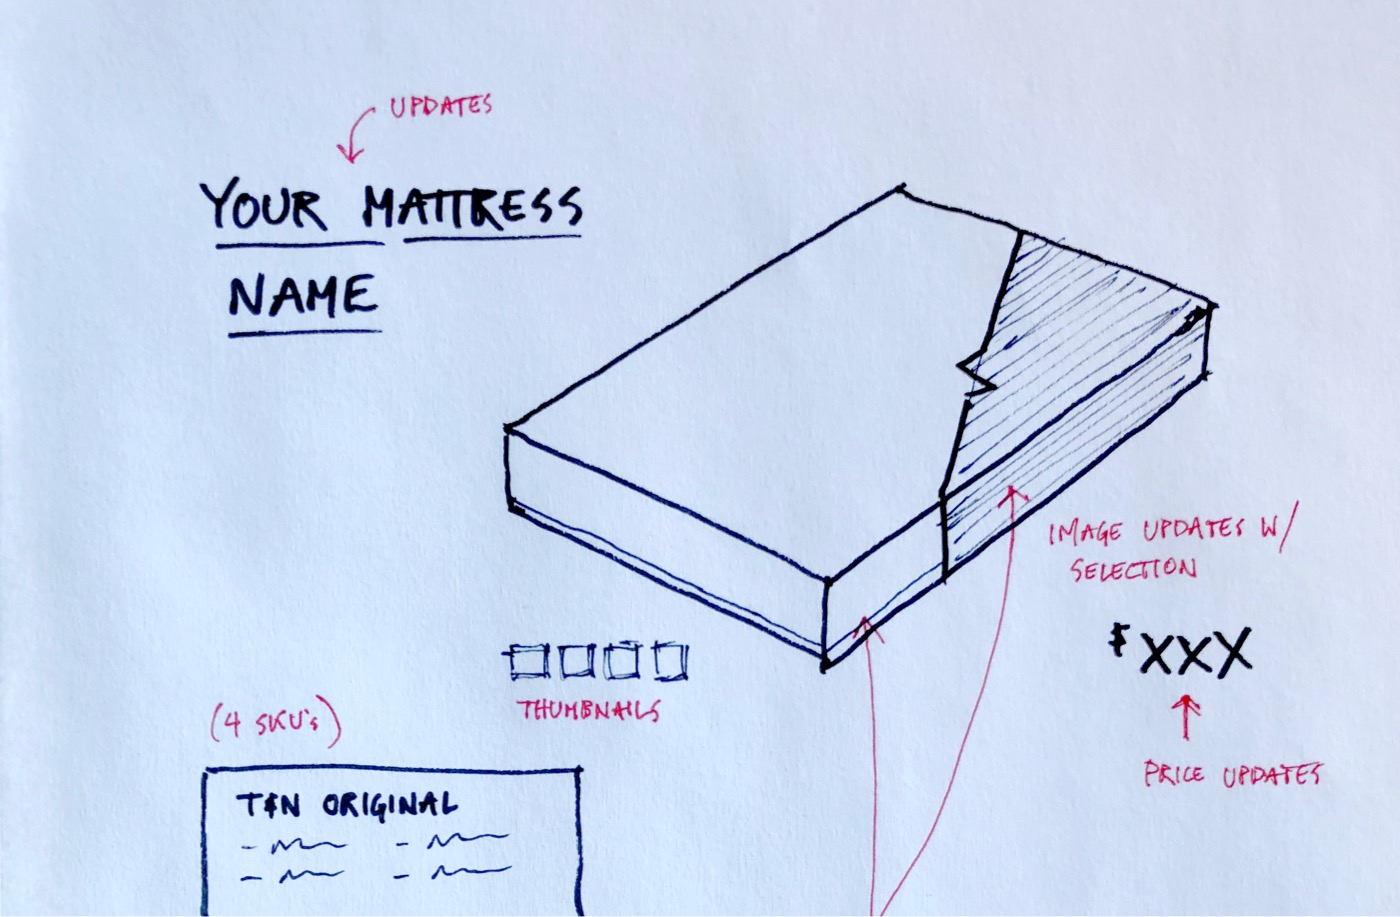 UPDATES
YOUR MATTRESS
NAME
IMAGE UPDATES W/
SELECTION
$XXX
THUMBNAILS
(4 SKU's)
PRICE UPDATES
T&N ORIGINAL